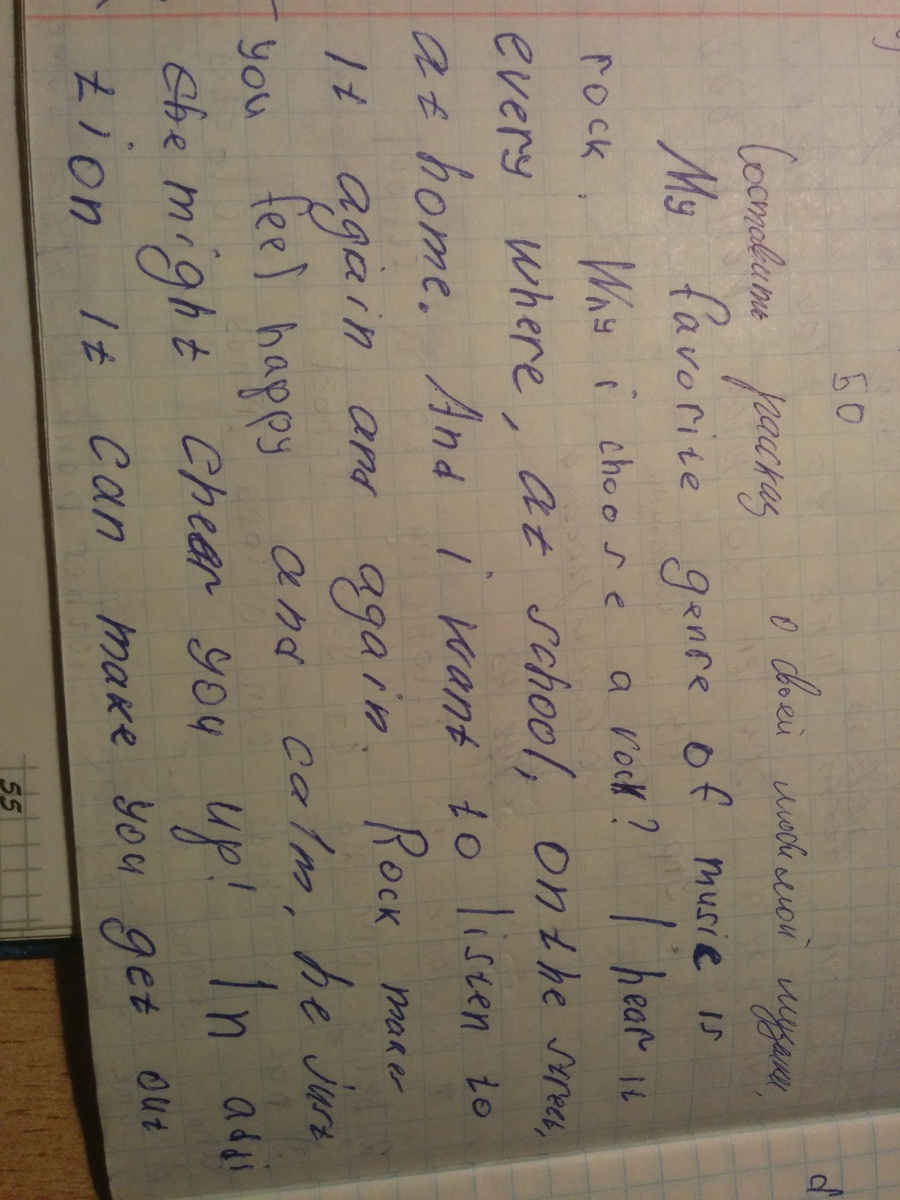 50
Составить рассказ о своей любимой музыке.
My favorite genre of music is
rock. Why i choose a rock? I hear it
every where, at school, on the street,
at home. And i want to listen to
it again and again. Rock maker
you feel happy and calm, he just
the might cheer you up! In addi
tion it can make you get out
55